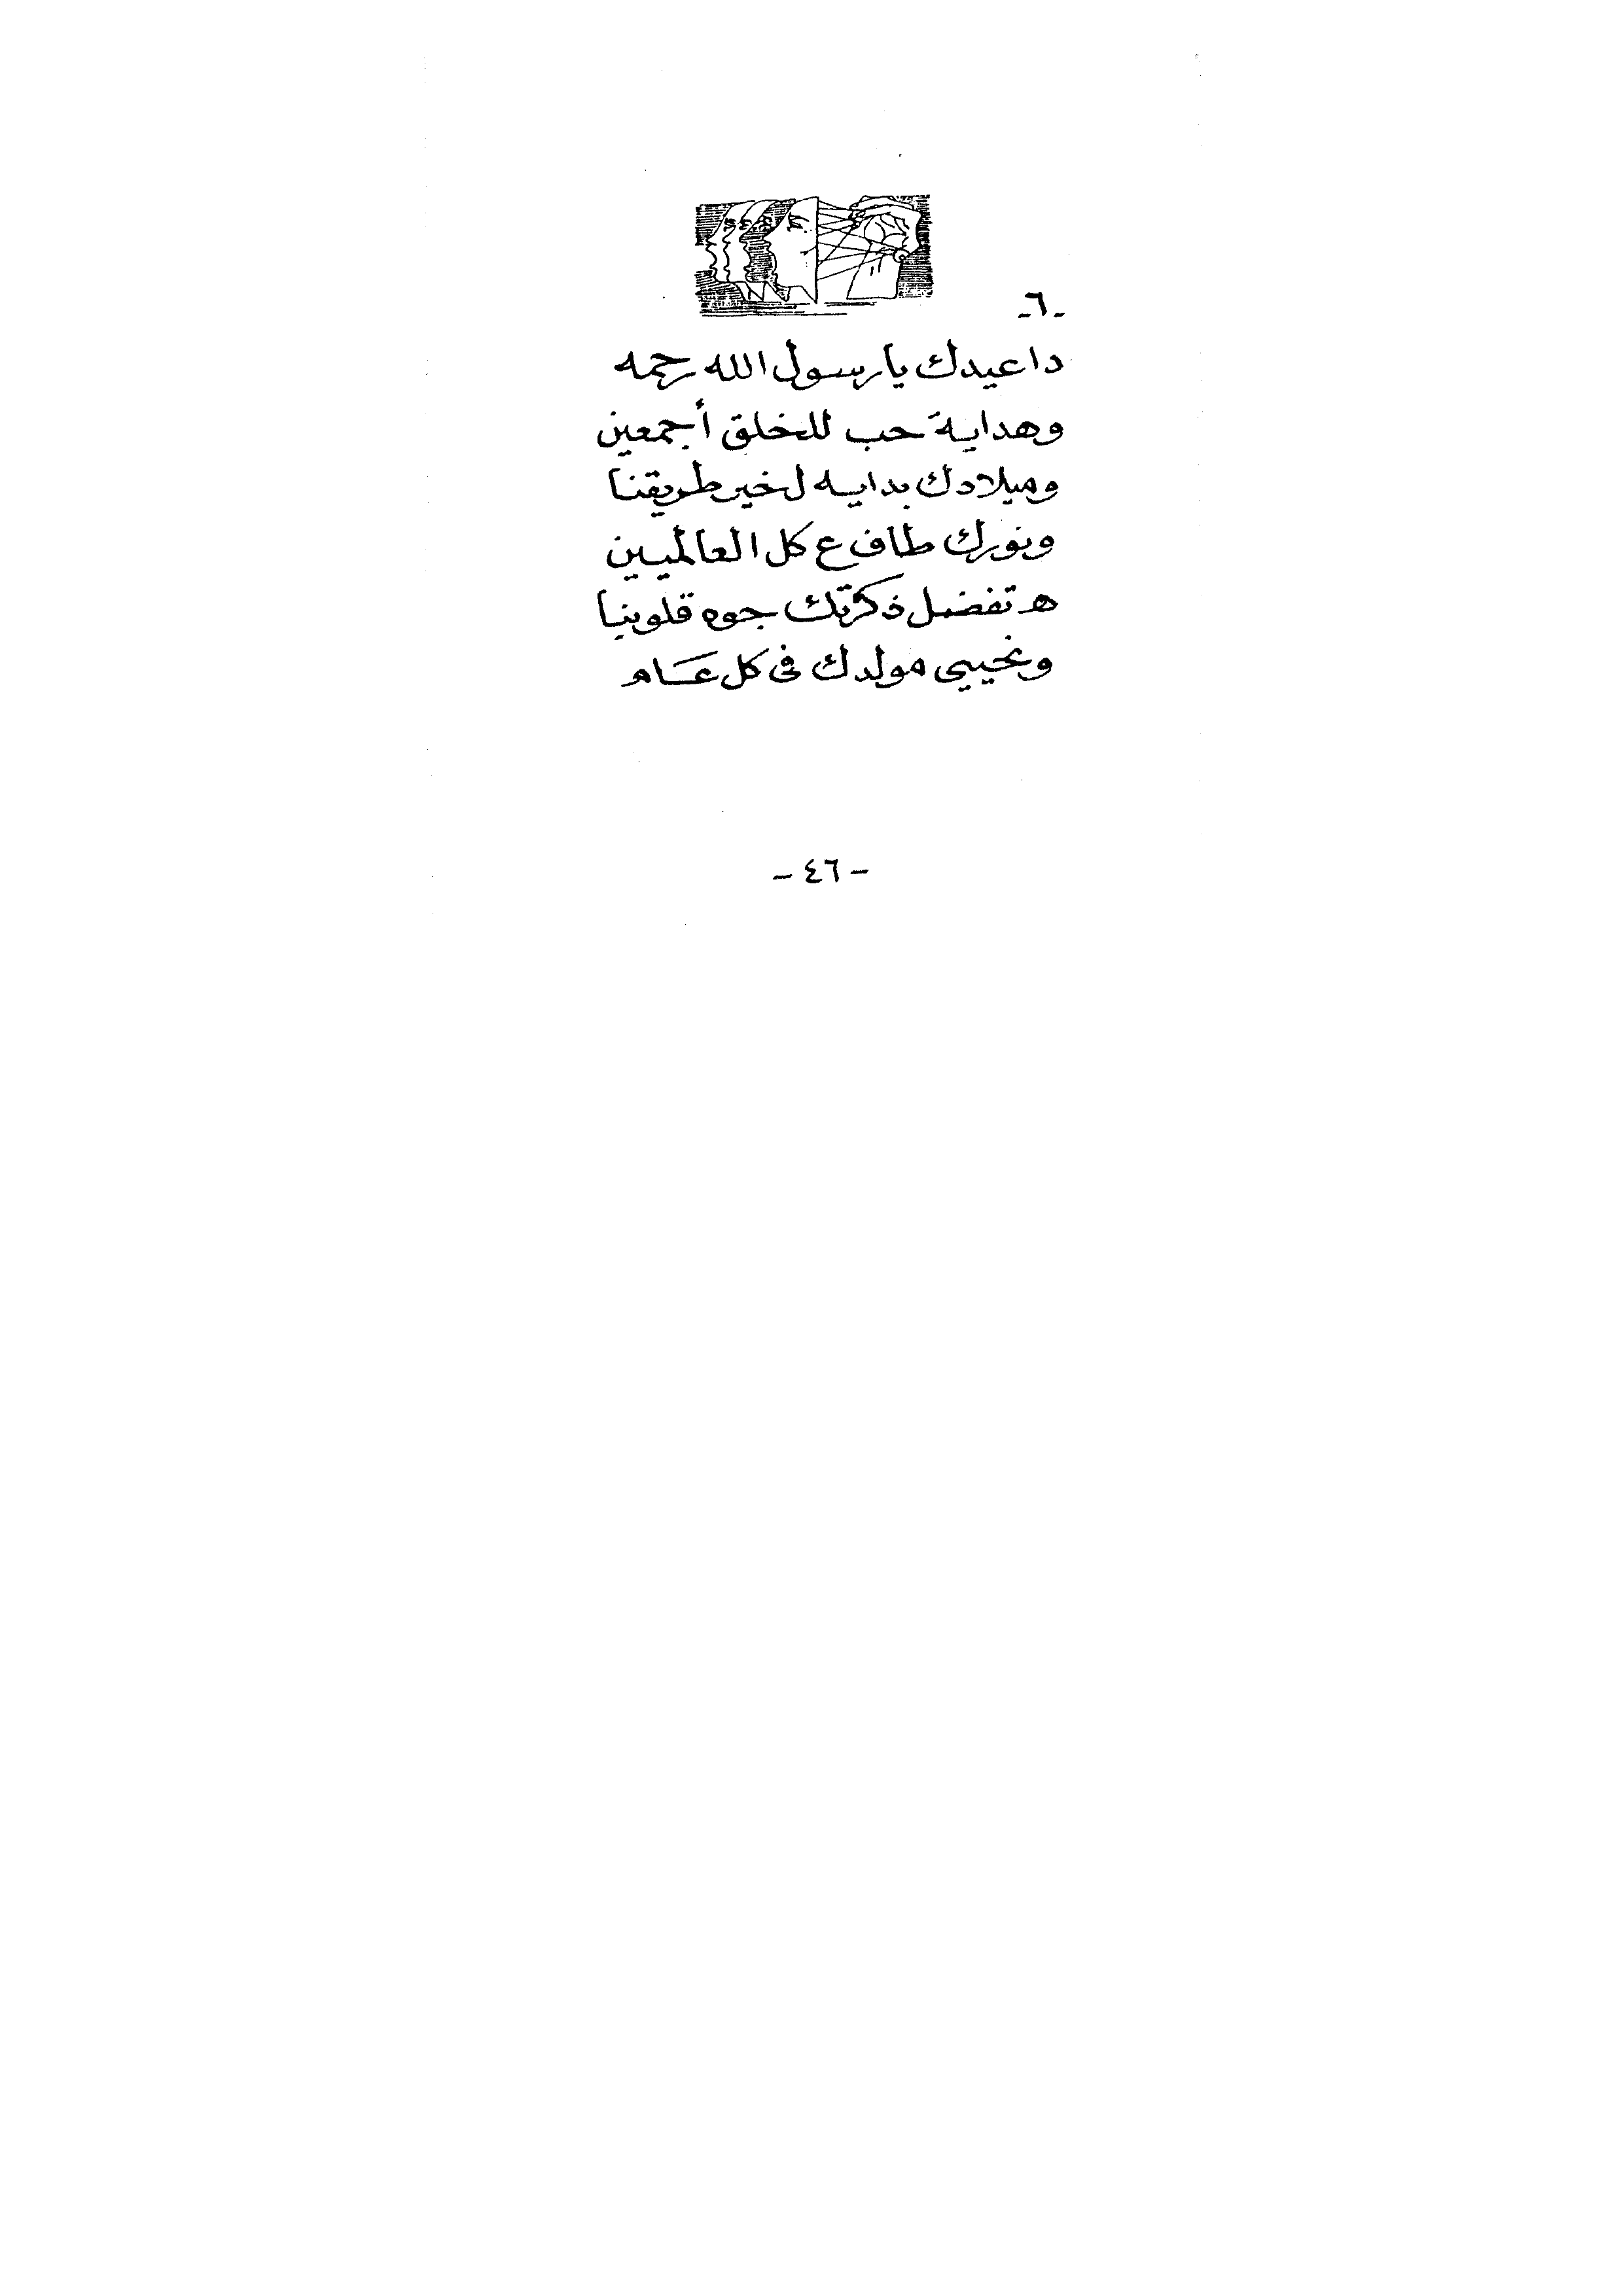 -٦-
دا عيدك يا رسول الله رحمه
وهداية حب للخلق أجمعين
وميلادك بدايه لخير طريقنا
ونورك طاف ع كل العالميين
هـ تفضل ذكرتك جوه قلوبنا
ونحيي مولدك فى كل عام
- ٤٦ -